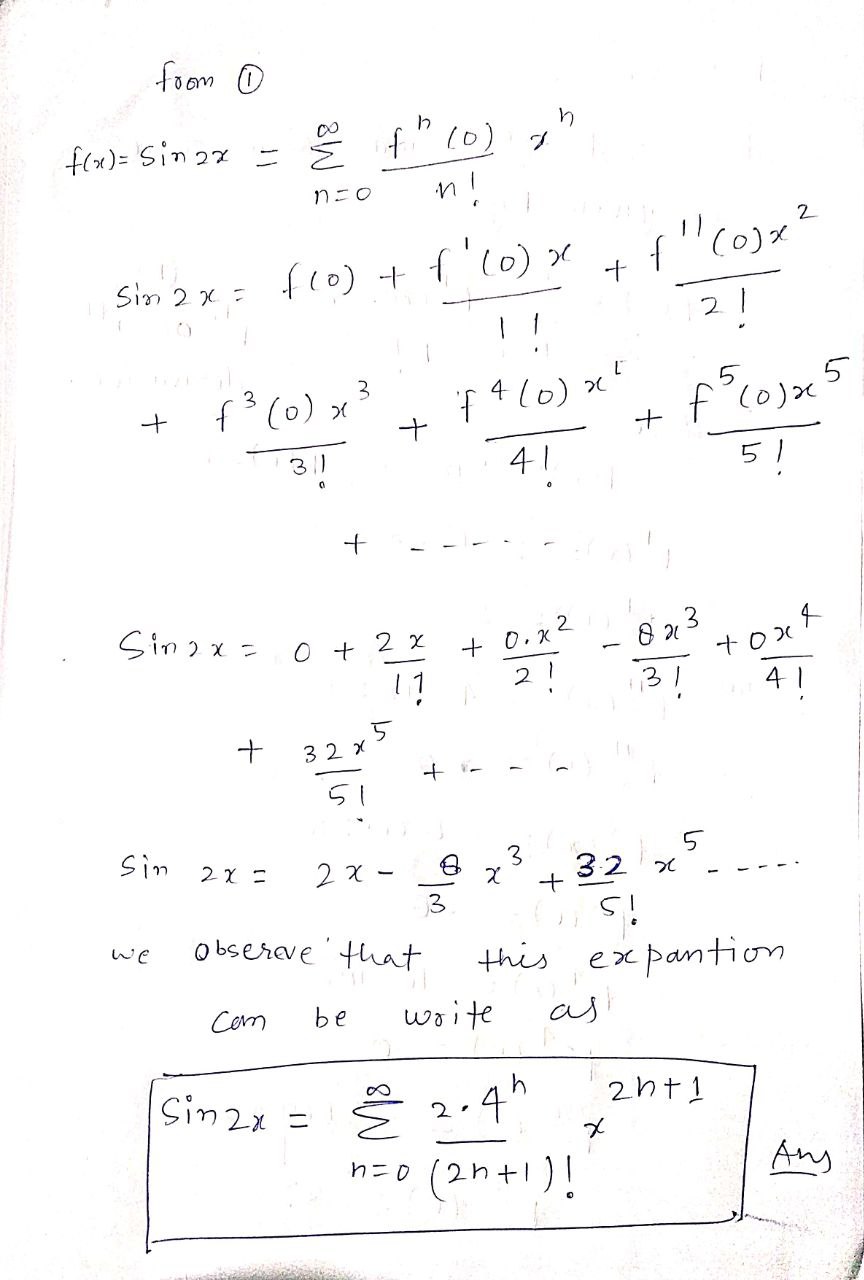 from ①
f(x)= Sin 2x = ∞Σn=0 fⁿ(0)/n! xⁿ
Sin 2x = f(0) + f'(0) x/1! + f''(0)x²/2!
+ f³(0) x³/3! + f⁴(0) x⁴/4! + f⁵(0)x⁵/5!
+ ------
Sin 2x = 0 + 2x/1! + 0.x²/2! - 8x³/3! + 0x⁴/4!
+ 32x⁵/5! + ---
Sin 2x = 2x - 8/3 x³ + 32/5! x⁵ -----
we observe that this expantion
can be write as
Sin2x = ∞Σn=0 2·4ⁿ/(2n+1)! x²ⁿ⁺¹ Ans